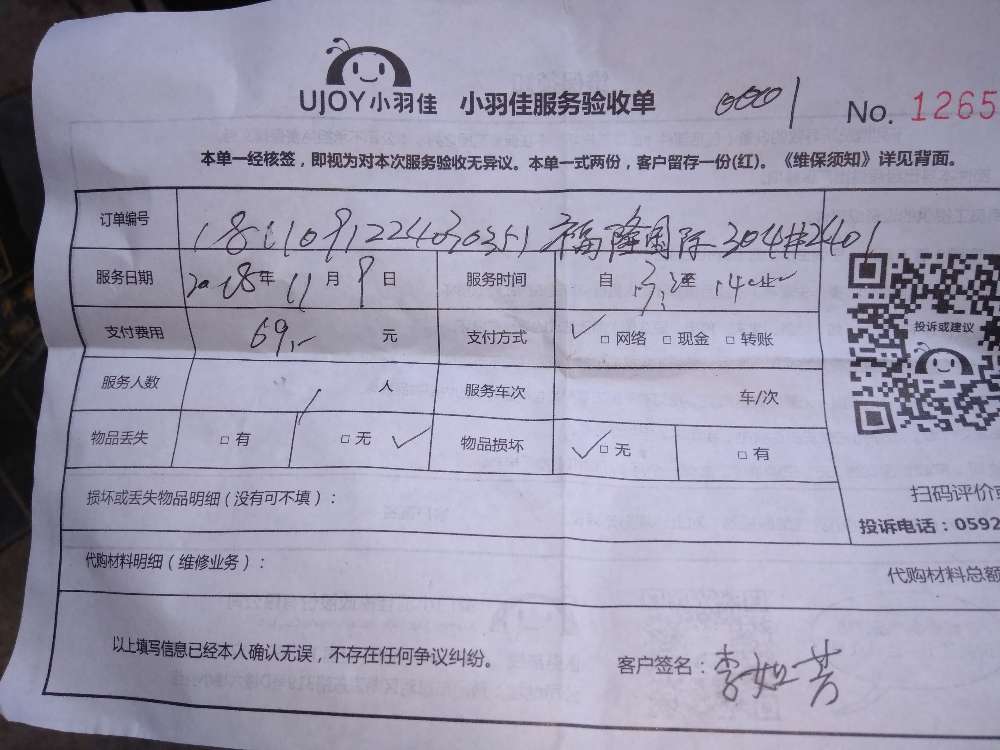 UJOY小羽佳 小羽佳服务验收单 0001 No. 1265
本单一经核签，即视为对本次服务验收无异议。本单一式两份，客户留存一份(红)。《维保须知》详见背面。
订单编号 福隆国际304#2401
服务日期 2018年11月9日 服务时间 自 至
支付费用 69,- 元 支付方式 ✓□网络 □现金 □转账
投诉或建议
服务人数 人 服务车次 车/次
物品丢失 □有 □无✓ 物品损坏 ✓□无 □有
损坏或丢失物品明细（没有可不填）：
扫码评价
投诉电话：0592
代购材料明细（维修业务）：
代购材料总额
以上填写信息已经本人确认无误，不存在任何争议纠纷。
客户签名：